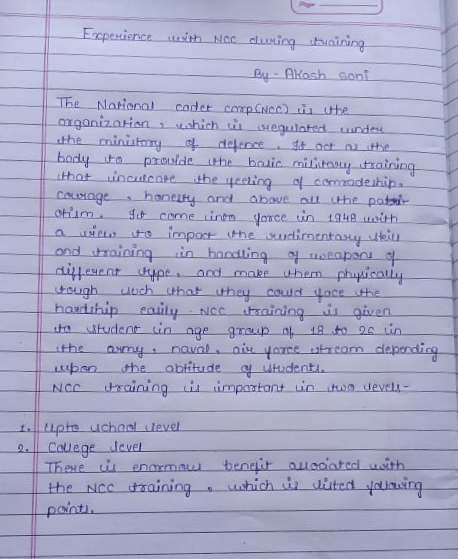 Experience with NCC during training
By - Akash Soni
The National cadet corp(NCC) is the
organization, which is regulated under
the ministory of defence. It act as the
body to provide the basic military training
that inculcate the feeling of comradeship,
courage, honesty and above all the patri-
otism. It came into force in 1948 with
a view to impact the rudimentary skill
and training in handling of weapons of
different type, and make them physically
tough such that they could face the
hardship easily. NCC training is given
to student in age group of 18 to 26 in
the army, naval, air force stream depending
upon the abtitude of students.
NCC training is important in two levels-
1. Upto school level
2. College level
There is enormous benefit associated with
the NCC training, which is listed following
points.